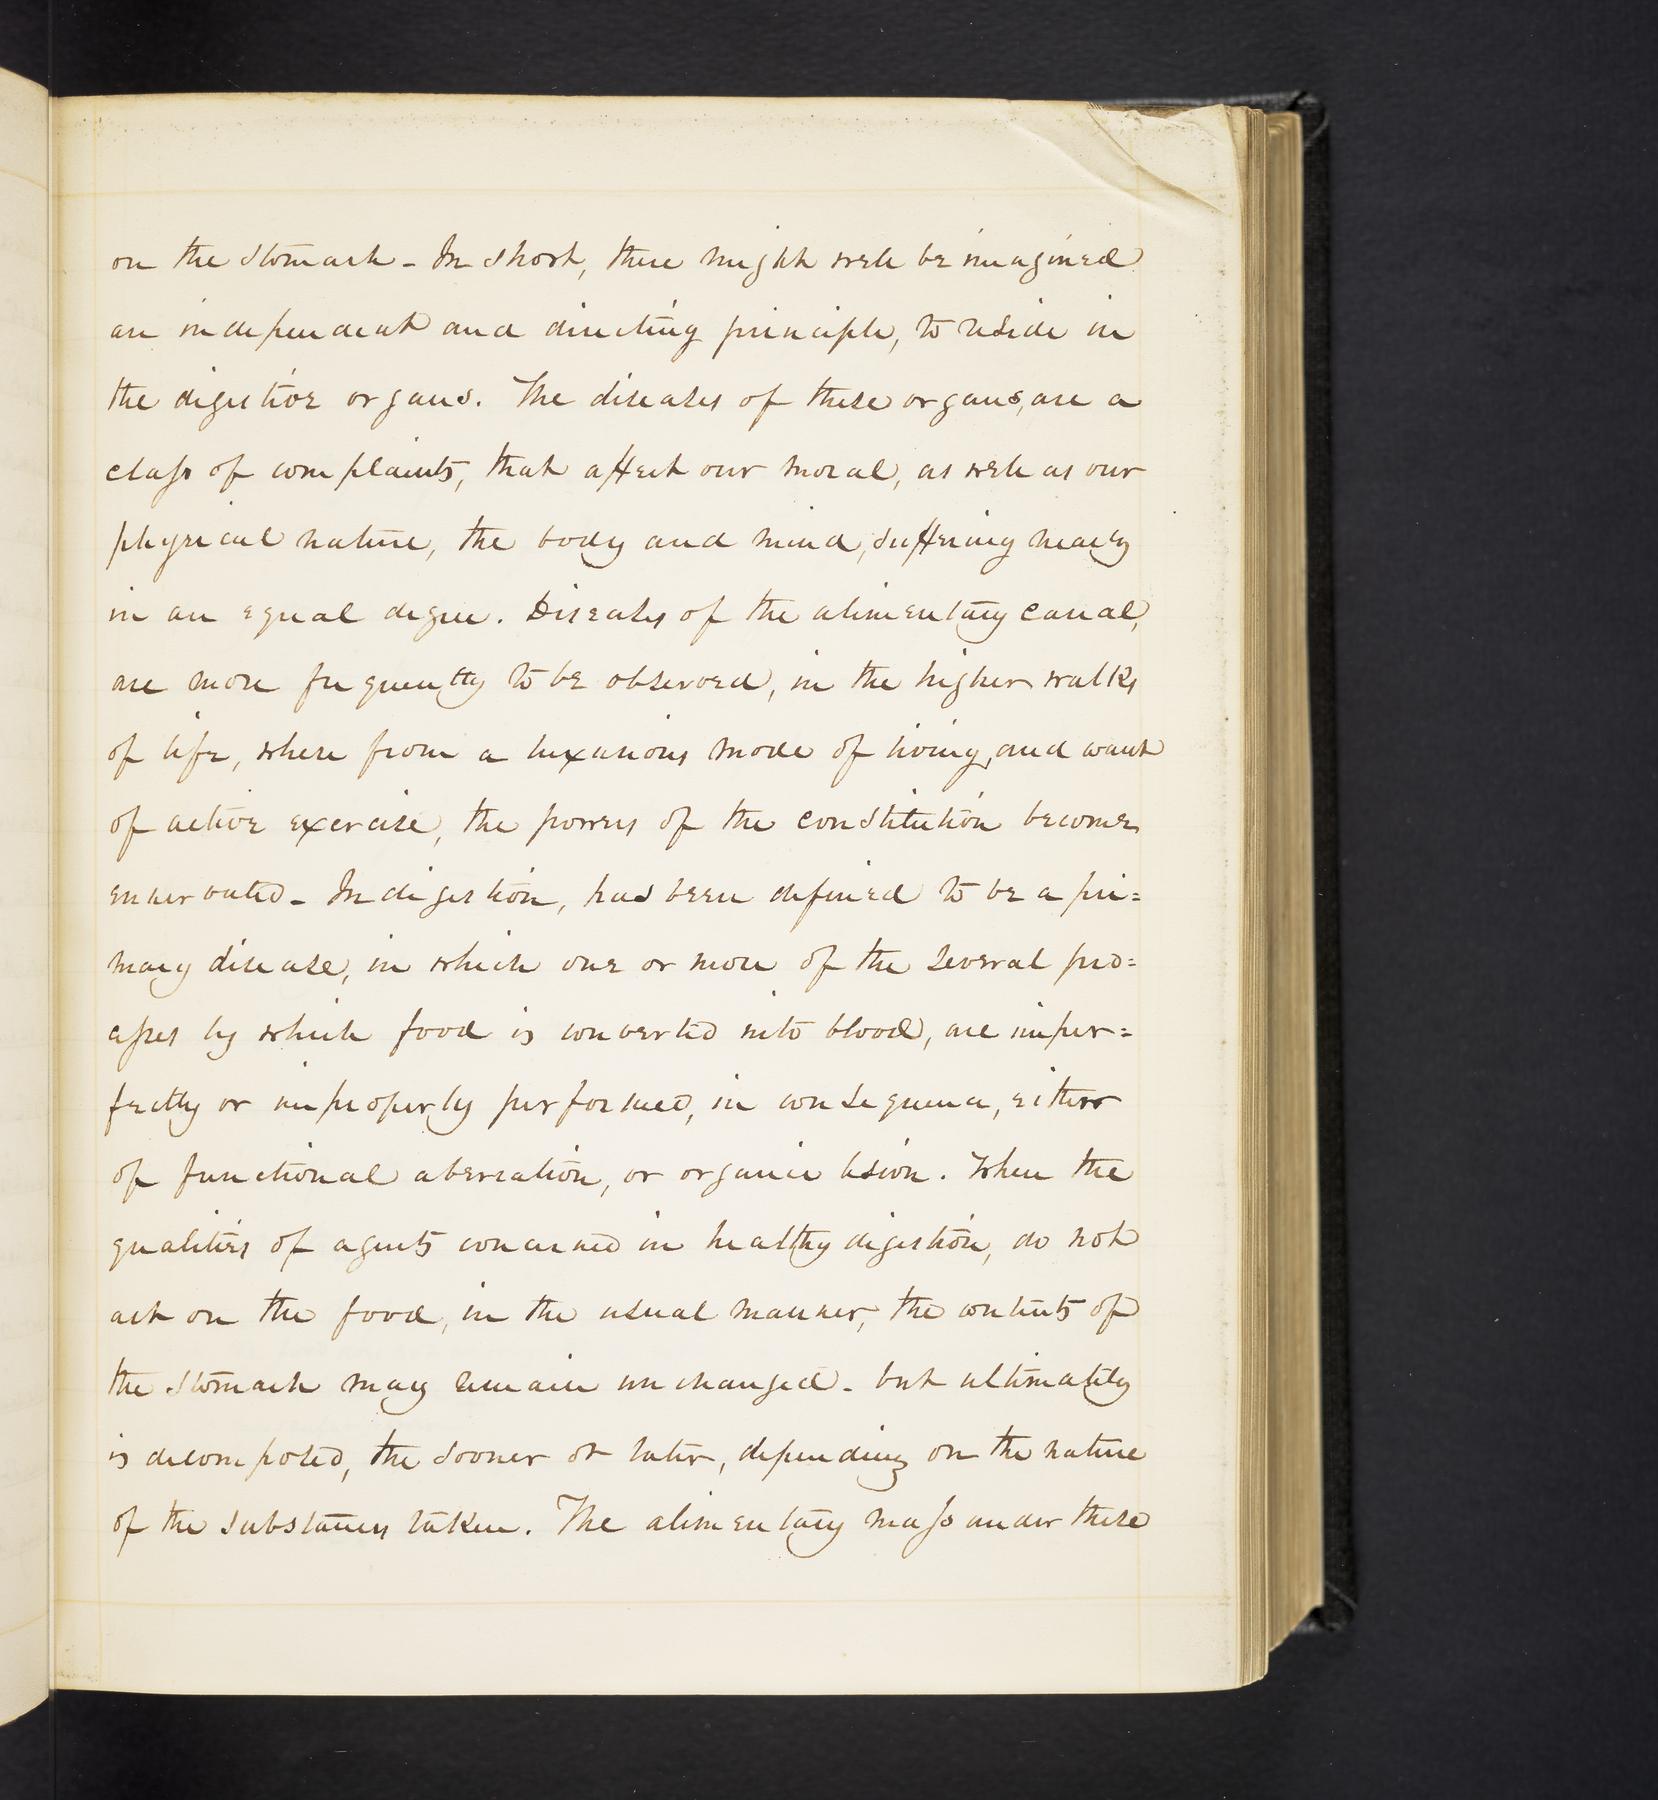 on the stomach - In short, there might well be imagined
an independent and directing principle, to reside in
the digestive organs. The diseases of these organs, are a
class of complaints, that affect our moral, as well as our
physical nature, the body and mind, suffering nearly
in an equal degree. Diseases of the alimentary canal,
are more frequently to be observed, in the higher walks
of life, where from a luxurious mode of living, and want
of active exercise, the powers of the constitution become
enervated - Indigestion, has been defined to be a pri=
mary disease, in which one or more of the several pro=
cesses by which food is converted into blood, are imper=
fectly or improperly performed, in consequence, either
of functional aberration, or organic lesion. When the
qualities of agents concerned in healthy digestion, do not
act on the food, in the usual manner, the contents of
the stomach may remain unchanged - but ultimately
is decomposed, the sooner or later, depending on the nature
of the substances taken. The alimentary mass under these